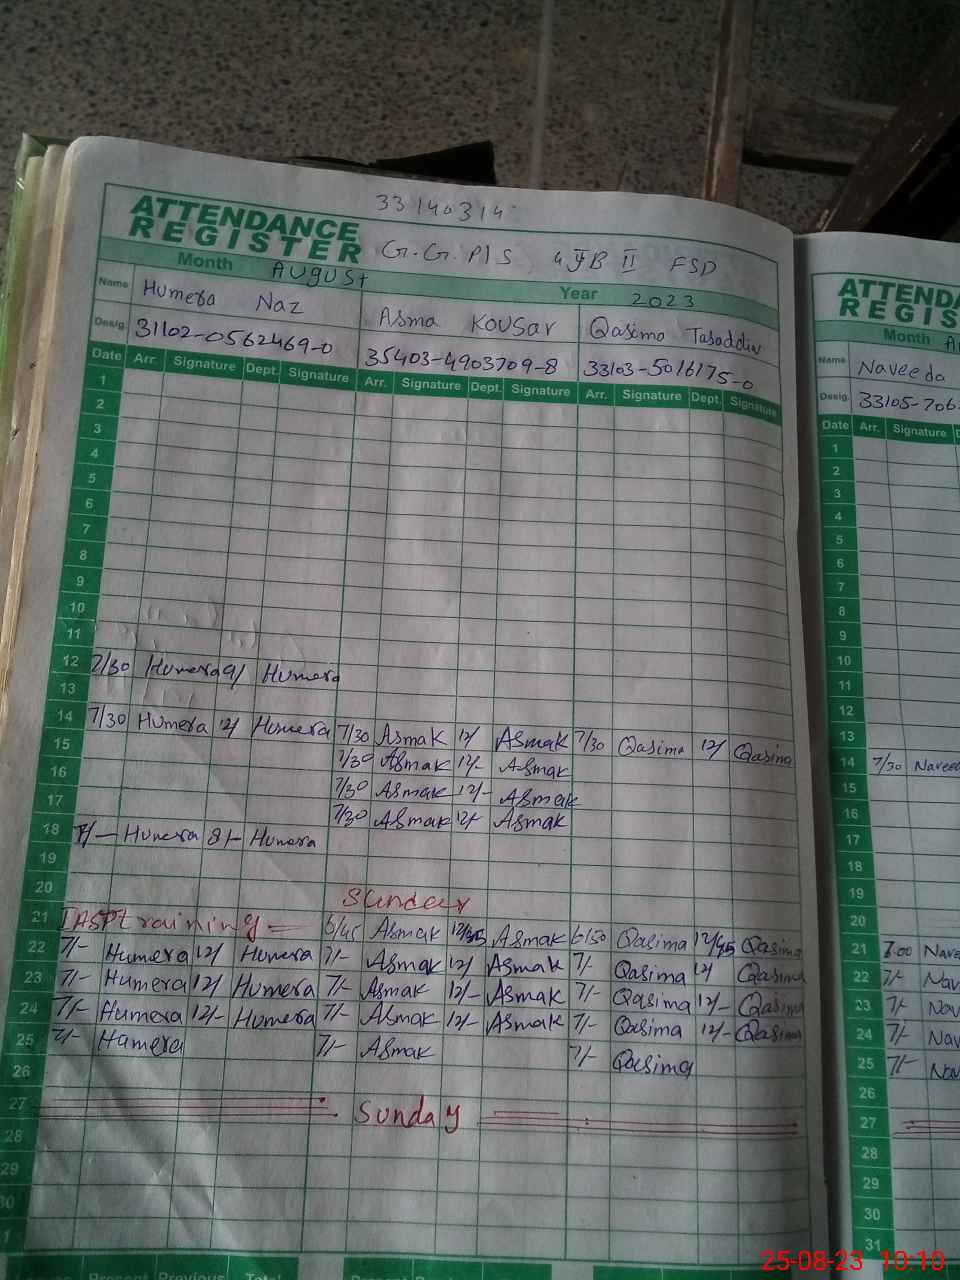 33140314
ATTENDANCE
REGISTER
G.G.P/S 4 JB II FSD
Month August Year 2023
Name Humera Naz Asma Kousar Qasima Tasaddiq
Desig. 31102-0562469-0 35403-4903709-8 33103-5016175-0
Date Arr. Signature Dept. Signature Arr. Signature Dept. Signature Arr. Signature Dept. Signature
1
2
3
4
5
6
7
8
9
10
11
12 7/30 Humera 9/ Humera
13
14 7/30 Humera 12/ Humera 7/30 AsmaK 12/ AsmaK 7/30 Qasima 12/ Qasima
15 7/30 AsmaK 12/- AsmaK
16 7/30 AsmaK 12/- AsmaK
17 7/30 AsmaK 12/- AsmaK
18 7/- Humera 8/- Humera
19
20 Sunday
21 IASP Training = 6/45 AsmaK 12/35 AsmaK 6/50 Qasima 12/45 Qasima
22 7/- Humera 12/ Humera 7/- AsmaK 12/ AsmaK 7/- Qasima 12/ Qasima
23 7/- Humera 12/ Humera 7/- AsmaK 12/- AsmaK 7/- Qasima 12/- Qasima
24 7/- Humera 12/- Humera 7/- AsmaK 12/- AsmaK 7/- Qasima 12/- Qasima
25 7/- Humera 7/- AsmaK 7/- Qasima
26
27 Sunday
28
29
30
1
Present Previous Total Present
ATTENDA
REGIS
Month A
Name Naveeda
Desig. 33105-706
Date Arr. Signature D
1
2
3
4
5
6
7
8
9
10
11
12
13
14 7/30 Naveed
15
16
17
18
19
20
21 7:00 Nave
22 7/- Nav
23 7/- Nov
24 7/- Nav
25 7/- Nav
26
27
28
29
30
31
25-08-23 10:10